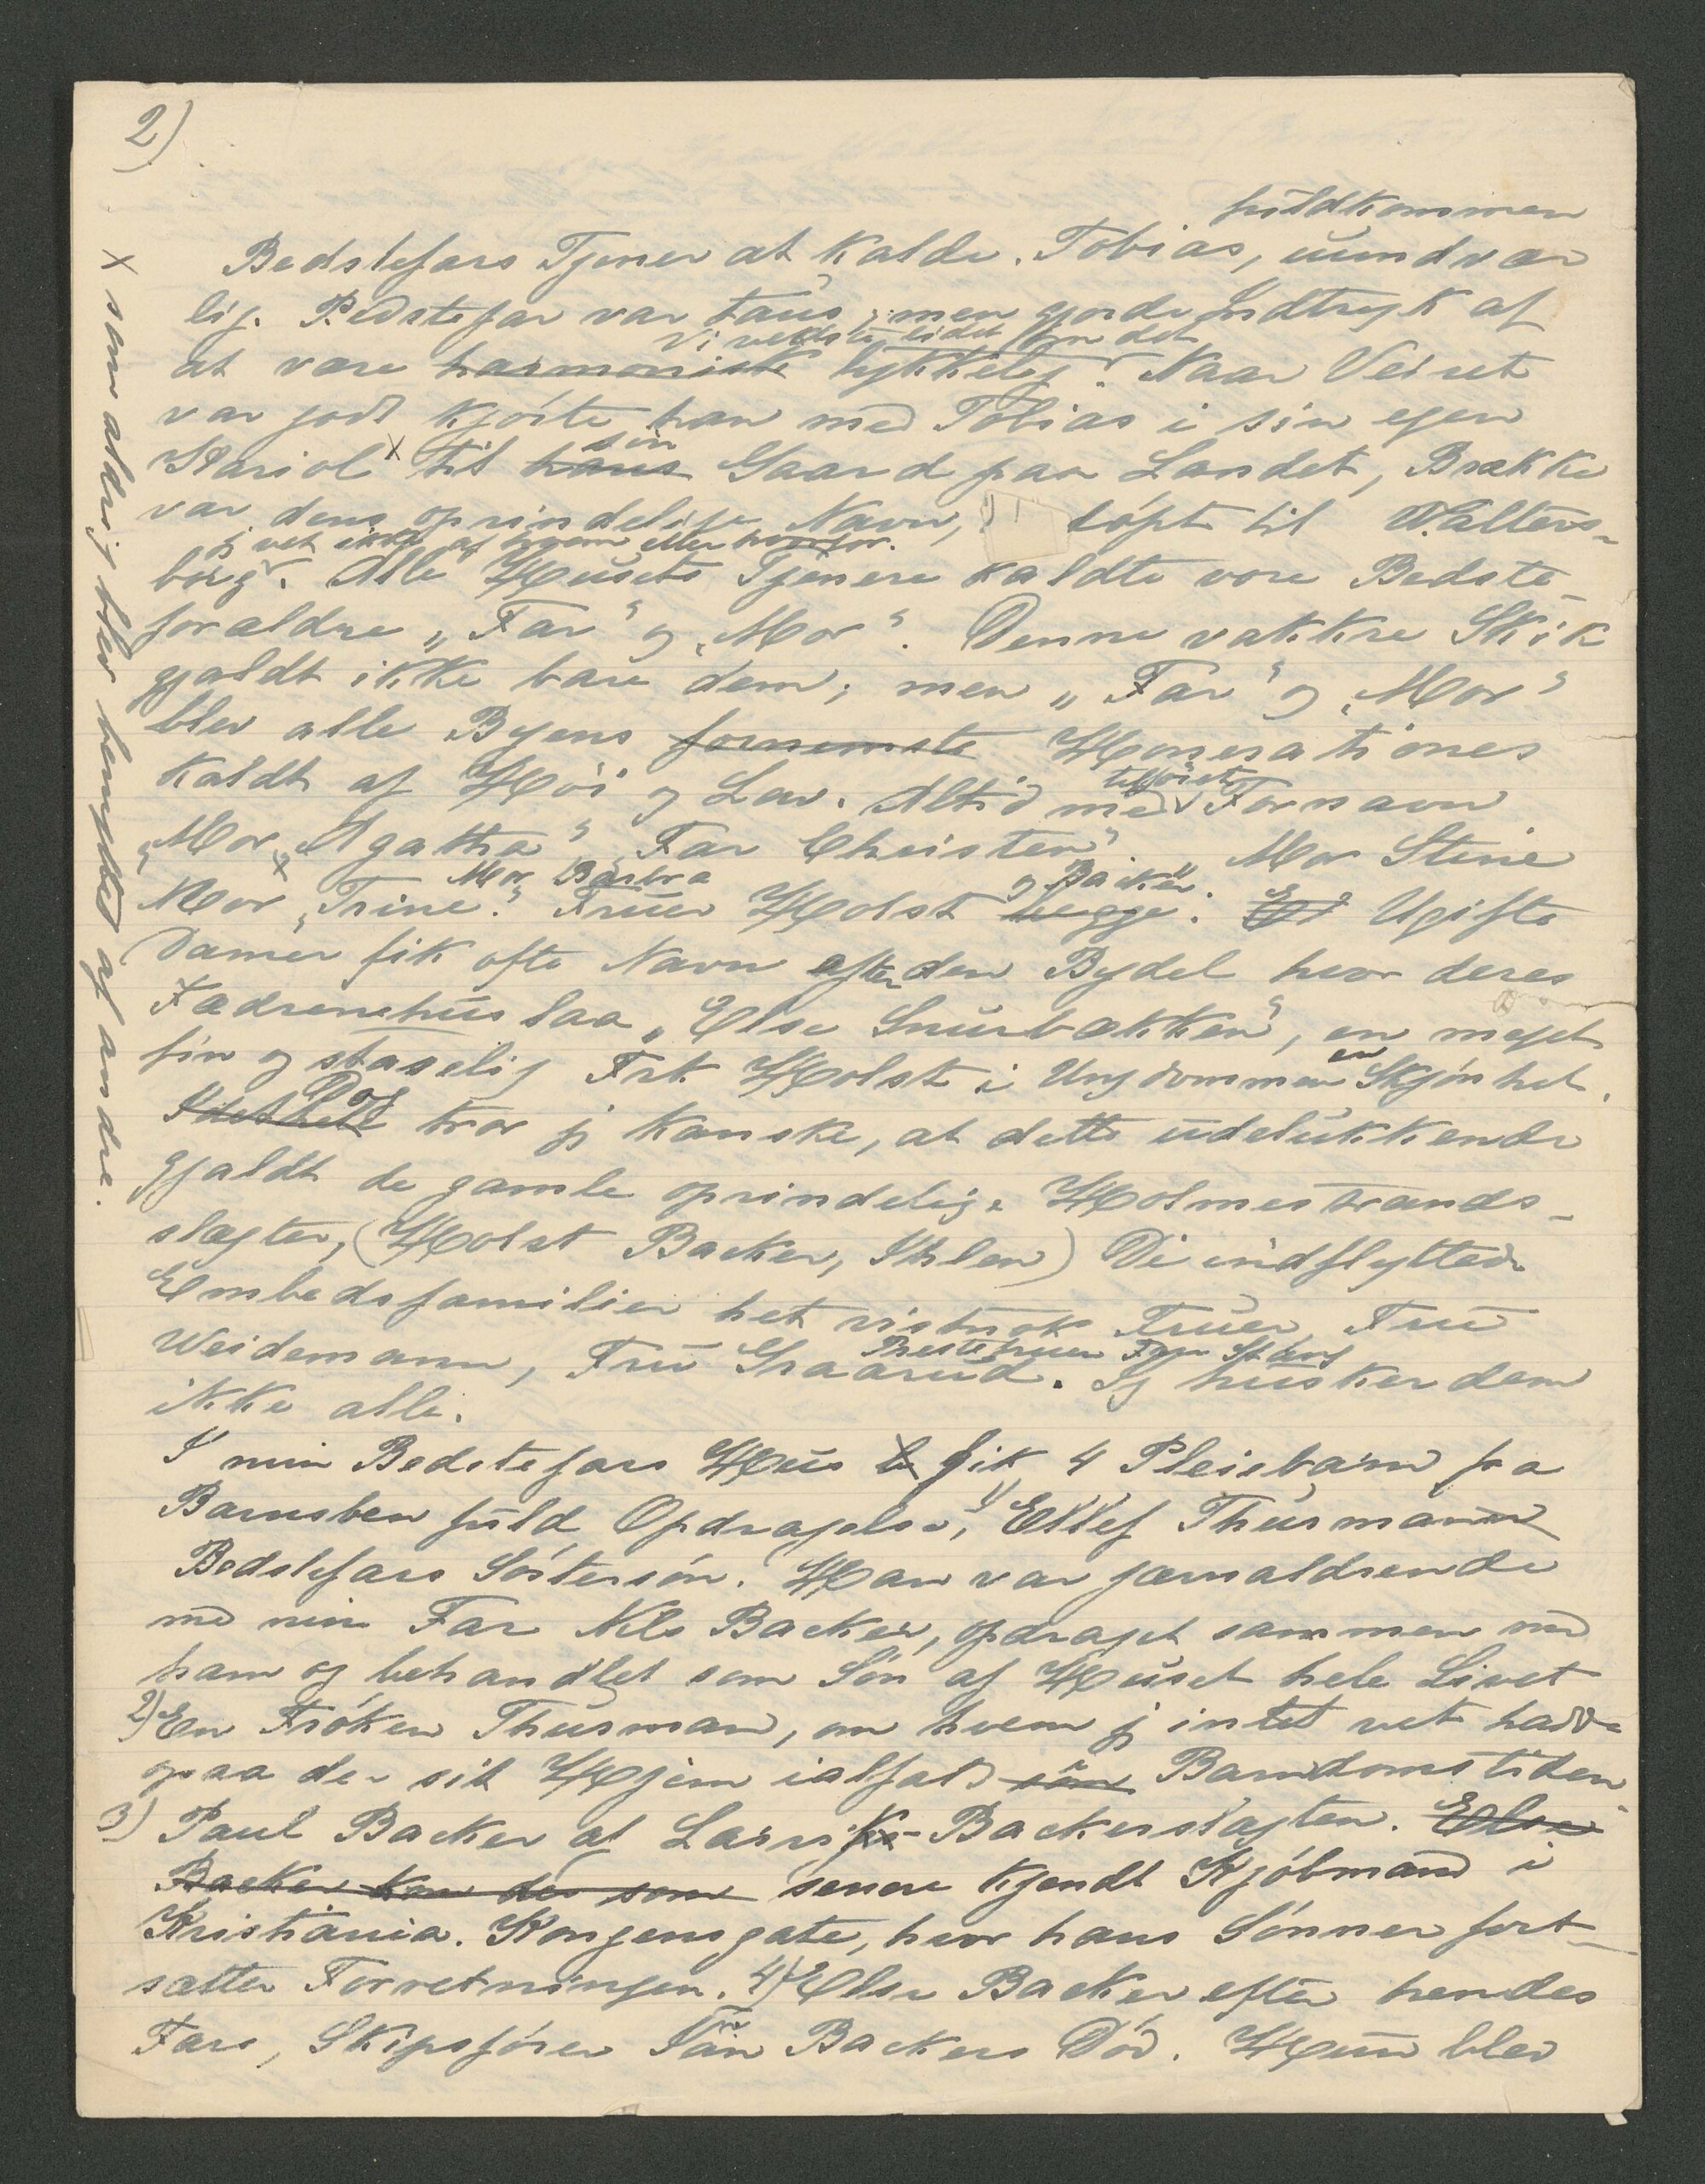 2)
fuldkommen
Bedstefars Tjener at kalde. Tobias, uundvær
lig. Bedstefar var taus, men gjorde Indtryk af
Vi vidste lidet om det
at være harmonisk lykkelig. Naar Veiret
var godt kjørte han med Tobias i sin egen
sin
Kariol x til hans Gaard paa Landet, Brække
var dens oprindelige Navn, døpt til Walters-
jeg vet ikke af hvem eller hvorfor.
borg. Alle Husets Tjenere kaldte vore Bedste-
forældre „Far" og „Mor". Denne vakkre Skik
gjaldt ikke bare dem; men „Far" og „Mor"
blev alle Byens fornemste Honoratiores
kaldt af Høi og Lav. Altid med tilføiet Fornavn
„Mor Agatha" „Far Christen" „Mor Stine
Mor Barbra og Backer.
Mor „Trine." Fruer Holst begge. Ugifte
Damer fik ofte Navn efter den Bydel hvor deres
Fædrenehus laa „Else Snurbækken", en meget
fin og staselig Frk Holst i Ungdommen en Skjønhet.
Dog
Idethele tror jeg kanske, at dette udelukkende
gjaldt de gamle oprindelige Holmestrands-
slægter, (Holst Backer, Ihlen) De indflyttede
Embedsfamilier het vistnok Fruer, Fru
Prestefruen Fru Stang
Weidemann, Fru Graarud. Jeg husker dem
ikke alle.
I min Bedstefars Hus fik 4 Pleiebarn fra
Barnsben fuld Opdragelse, 1) Ellef Thurmann
Bedstefars Søstersøn. Han var jævnaldrende
med min Far Nils Backer, opdraget sammen med
ham og behandlet som Søn af Huset hele Livet
2) En Frøken Thurman, om hvem jeg intet vet havde
ogsaa der sit Hjem ialfald Barndomstiden.
3) Paul Backer af Larvik-Backerslægten. Else
Backer kom der som senere kjendt Kjøbmand i
Kristiania. Kongensgate, hvor hans Sønner fort-
sætter Forretningen. 4) Else Backer efter hendes
Fars, Skipsfører Jan Backers Død. Hun blev
x som aldrig blev benyttet af andre.